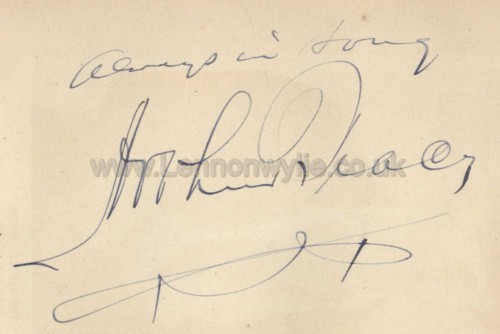 Always in song
Arthur Tracy
www.Lennonwylie.co.uk